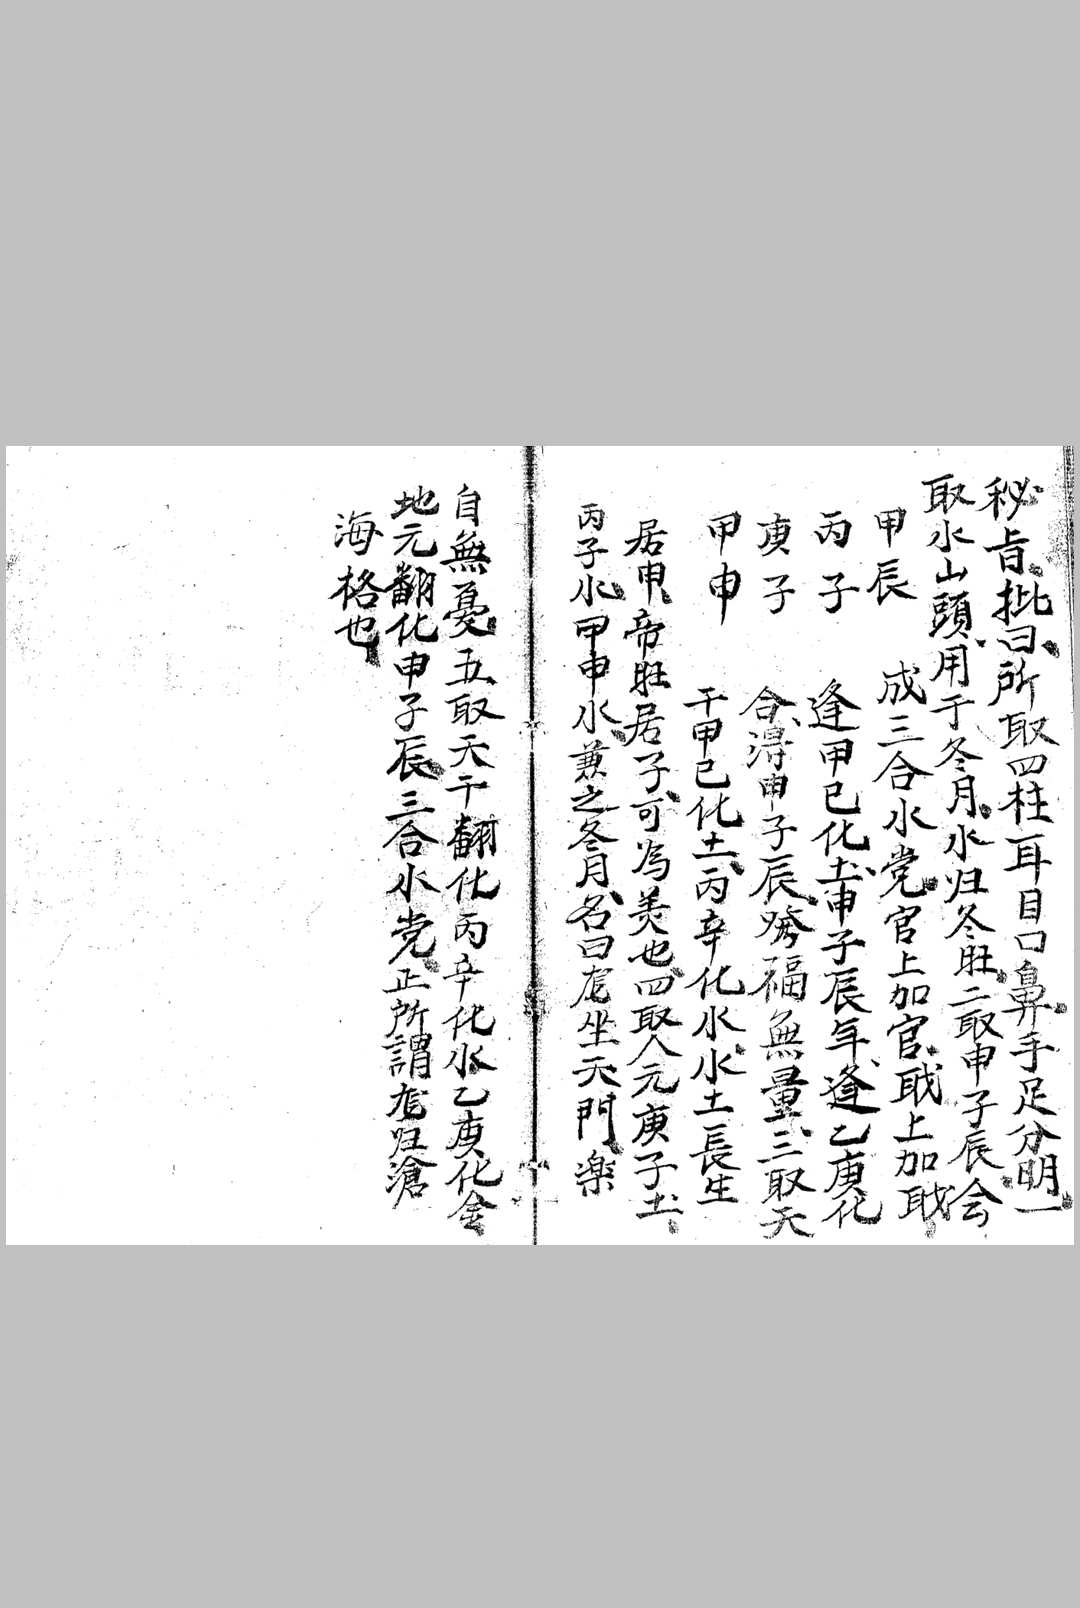 秘旨批曰所取四柱耳目口鼻手足分明一
取水山頭用于冬月水归冬旺二取申子辰会
甲辰　成三合水党官上加官戝上加戝
丙子　逢甲己化土申子辰年逢乙庚化
庚子　合淂申子辰发福無量三取天
甲申　干甲己化土丙辛化水水土長生
居申帝旺居子可為美也四取人元庚子土
丙子水甲申水兼之冬月名曰尨坐天門楽
自無憂五取天干翻化丙辛化水乙庚化金
地元翻化申子辰三合水党正所謂尨归滄
海格也